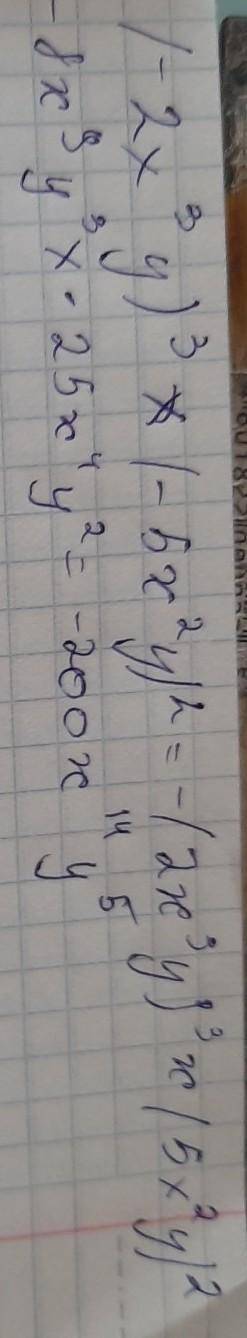 (-2x³y)³ x (-5x²y)² = -(2x³y)³ x (5x²y)²
-8x⁹y³ x · 25x⁴y² = -200x¹⁴y⁵